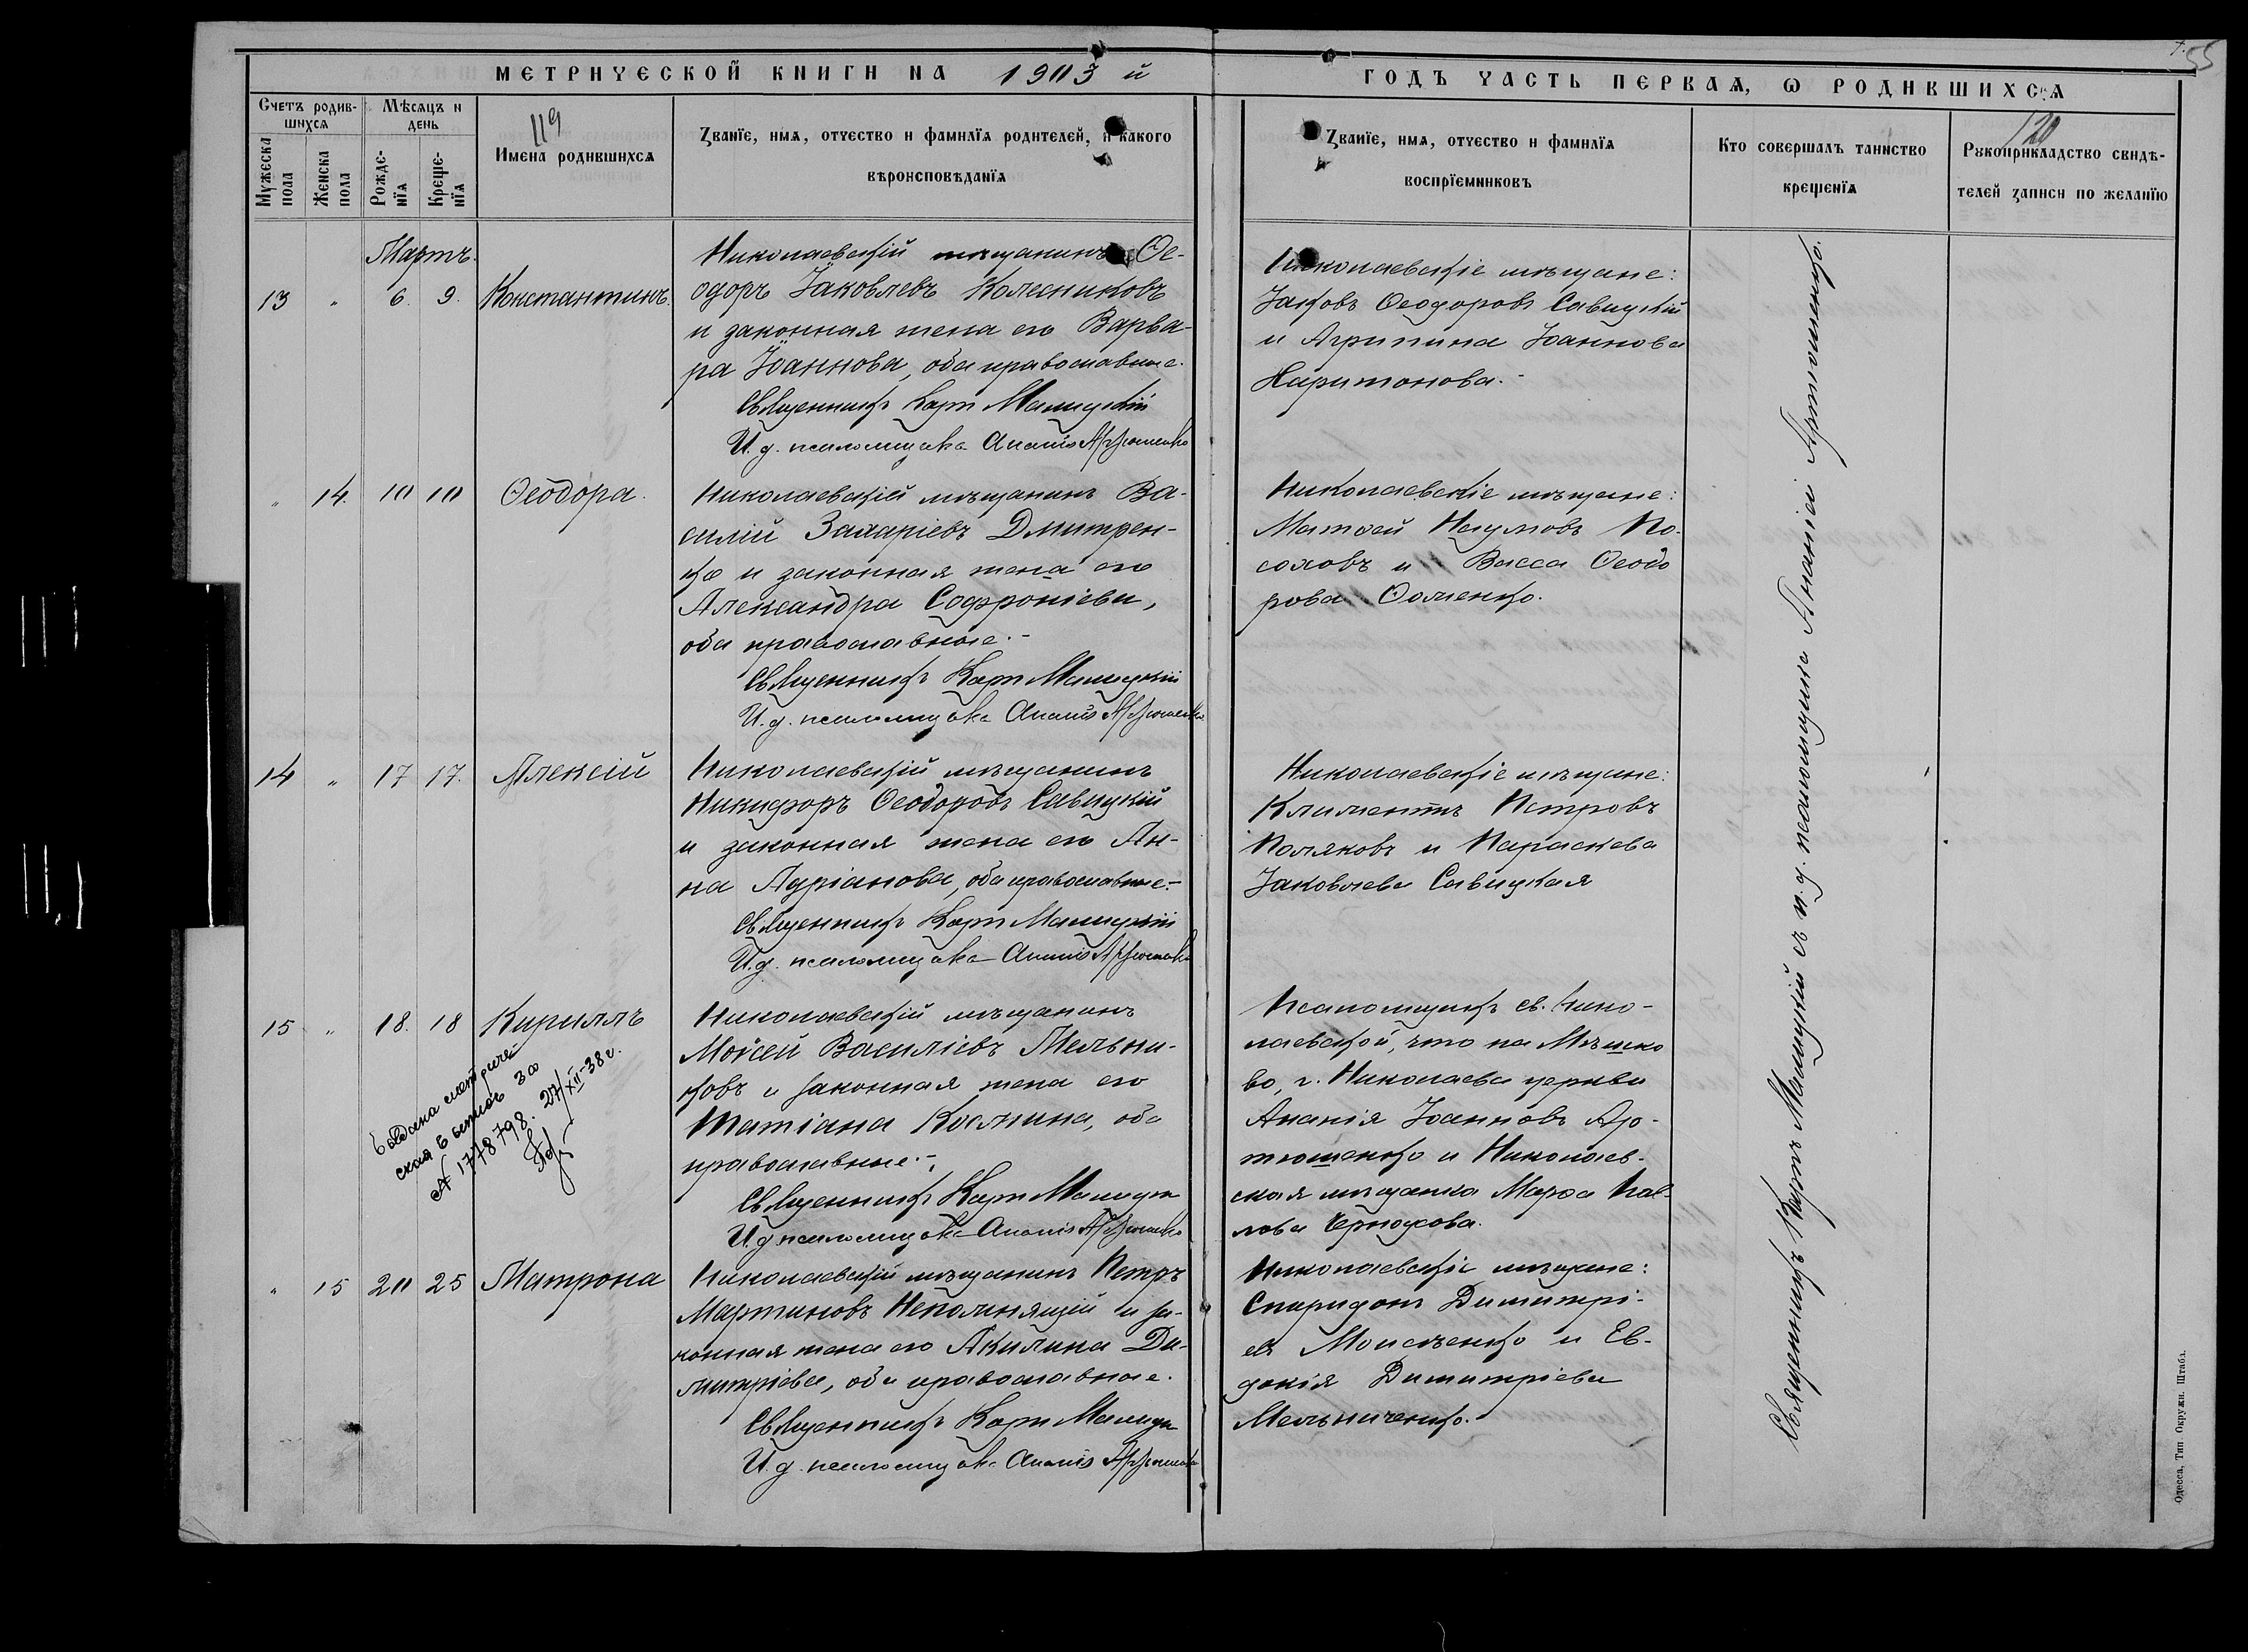 МЕТРИЧЕСКОЙ КНИГИ НА 1903 й
ГОДЪ ЧАСТЬ ПЕРВАЯ, Ѡ РОДИВШИХСЯ
55
Счетъ родив-
шихся
Мѣсяцъ и
день
119
Мужеска
пола
Женска
пола
Рожде-
нїя
Креще-
нїя
Имена родившихся
Званїе, имя, отчество и фамилїя родителей, и какого
вѣроисповѣданїя
Званїе, имя, отчество и фамилїя
воспрїемниковъ
Кто совершалъ таинство
крещенїя
120
Рукоприкладство свидѣ-
телей записи по желанїю
Мартъ.
13 " 6. 9. Константинъ.
Николаевскій мѣщанинъ Ѳе-
одоръ Іаковлевъ Колесниковъ
и законная жена его Варва-
ра Іоаннова, оба православные.
Священникъ Карпъ Малицкій
И. д. псаломщика Ананія Артюшенко
Николаевскіе мѣщане:
Іаковъ Ѳеодоровъ Савицкій
и Агрипина Іоаннова
Харитонова.-
" 14. 10 10 Ѳеодора.
Николаевскій мѣщанинъ Ва-
силій Захаріевъ Дмитрен-
ко и законная жена его
Александра Софроніева,
оба православные.-
Священникъ Карпъ Малицкій
И. д. псаломщика Ананія Артюшенко
Николаевскіе мѣщане:
Матѳей Наумовъ По-
соховъ и Васса Ѳеодо
рова Ѳоменко.
14 " 17 17. Алексій
Николаевскій мѣщанинъ
Никифоръ Ѳеодоровъ Савицкій
и законная жена его Ан-
на Адріанова, оба православные.-
Священникъ Карпъ Малицкій
И. д. псаломщика Ананія Артюшенко
Николаевскіе мѣщане:
Климентъ Петровъ
Поляковъ и Параскева
Іаковлева Савицкая
15 " 18. 18 Кириллъ
Николаевскій мѣщанинъ
Моѵсей Василіевъ Мельни-
ковъ и законная жена его
Татіана Космина, оба
православные.-
Священникъ Карпъ Малицкій
И. д. псаломщика Ананія Артюшенко
Псаломщикъ св. Нико-
лаевской, что на Мѣшко
во, г. Николаева церкви
Ананія Іоанновъ Ар-
тюшенко и Николаев-
ская мѣщанка Марѳа Пав-
лова Чернюхова.
Выдана метриче-
ская выпись за
№ 1778798. 27/XII-38 г.
" 15 20 25 Матрона
Николаевскій мѣщанинъ Петръ
Мартиновъ Непомнящій и за-
конная жена его Акилина Ди-
митріева, оба православные.
Священникъ Карпъ Малицкій
И. д. псаломщика Ананія Артюшенко
Николаевскіе мѣщане:
Спиридонъ Димитрі-
евъ Моисеенко и Ев-
докія Димитріева
Мельниченко.
Священникъ Карпъ Малицкій съ и. д. псаломщика Ананіей Артюшенко.
Одесса, Тип. Окружн. Штаба.